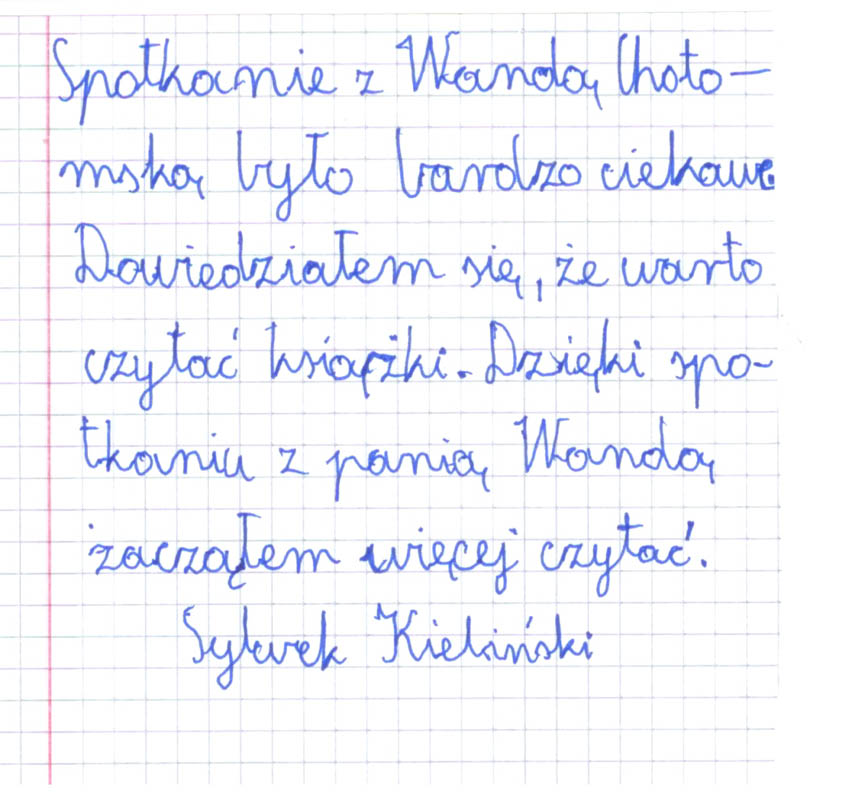 Spotkanie z Wandą Choto-
mską było bardzo ciekawe.
Dowiedziałem się, że warto
czytać książki. Dzięki spo-
tkaniu z panią Wandą
zacząłem więcej czytać.
Sylwek Kieliński